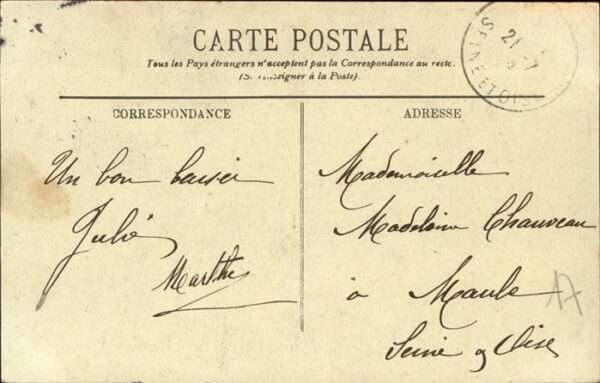 CARTE POSTALE
Tous les Pays étrangers n'acceptent pas la Correspondance au recto.
(S. nseigner à la Poste).
CORRESPONDANCE
ADRESSE
Un bon baiser
Julie
Marthe
Mademoiselle
Madeleine Chauveau
à Maule
Seine & Oise
SEINE ET OISE
21 -7
A7